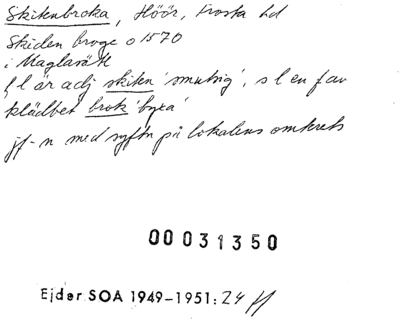 Skitenbroka, Höör, Frosta hd
Skiden broge o 1570
i Maglarätt
f l är adj skiten 'smutsig', s l en f av
klädbet brok 'byxa'
jf-n med syftn på lokalens omkrets
00031350
Ejder SOA 1949-1951: 24 ff